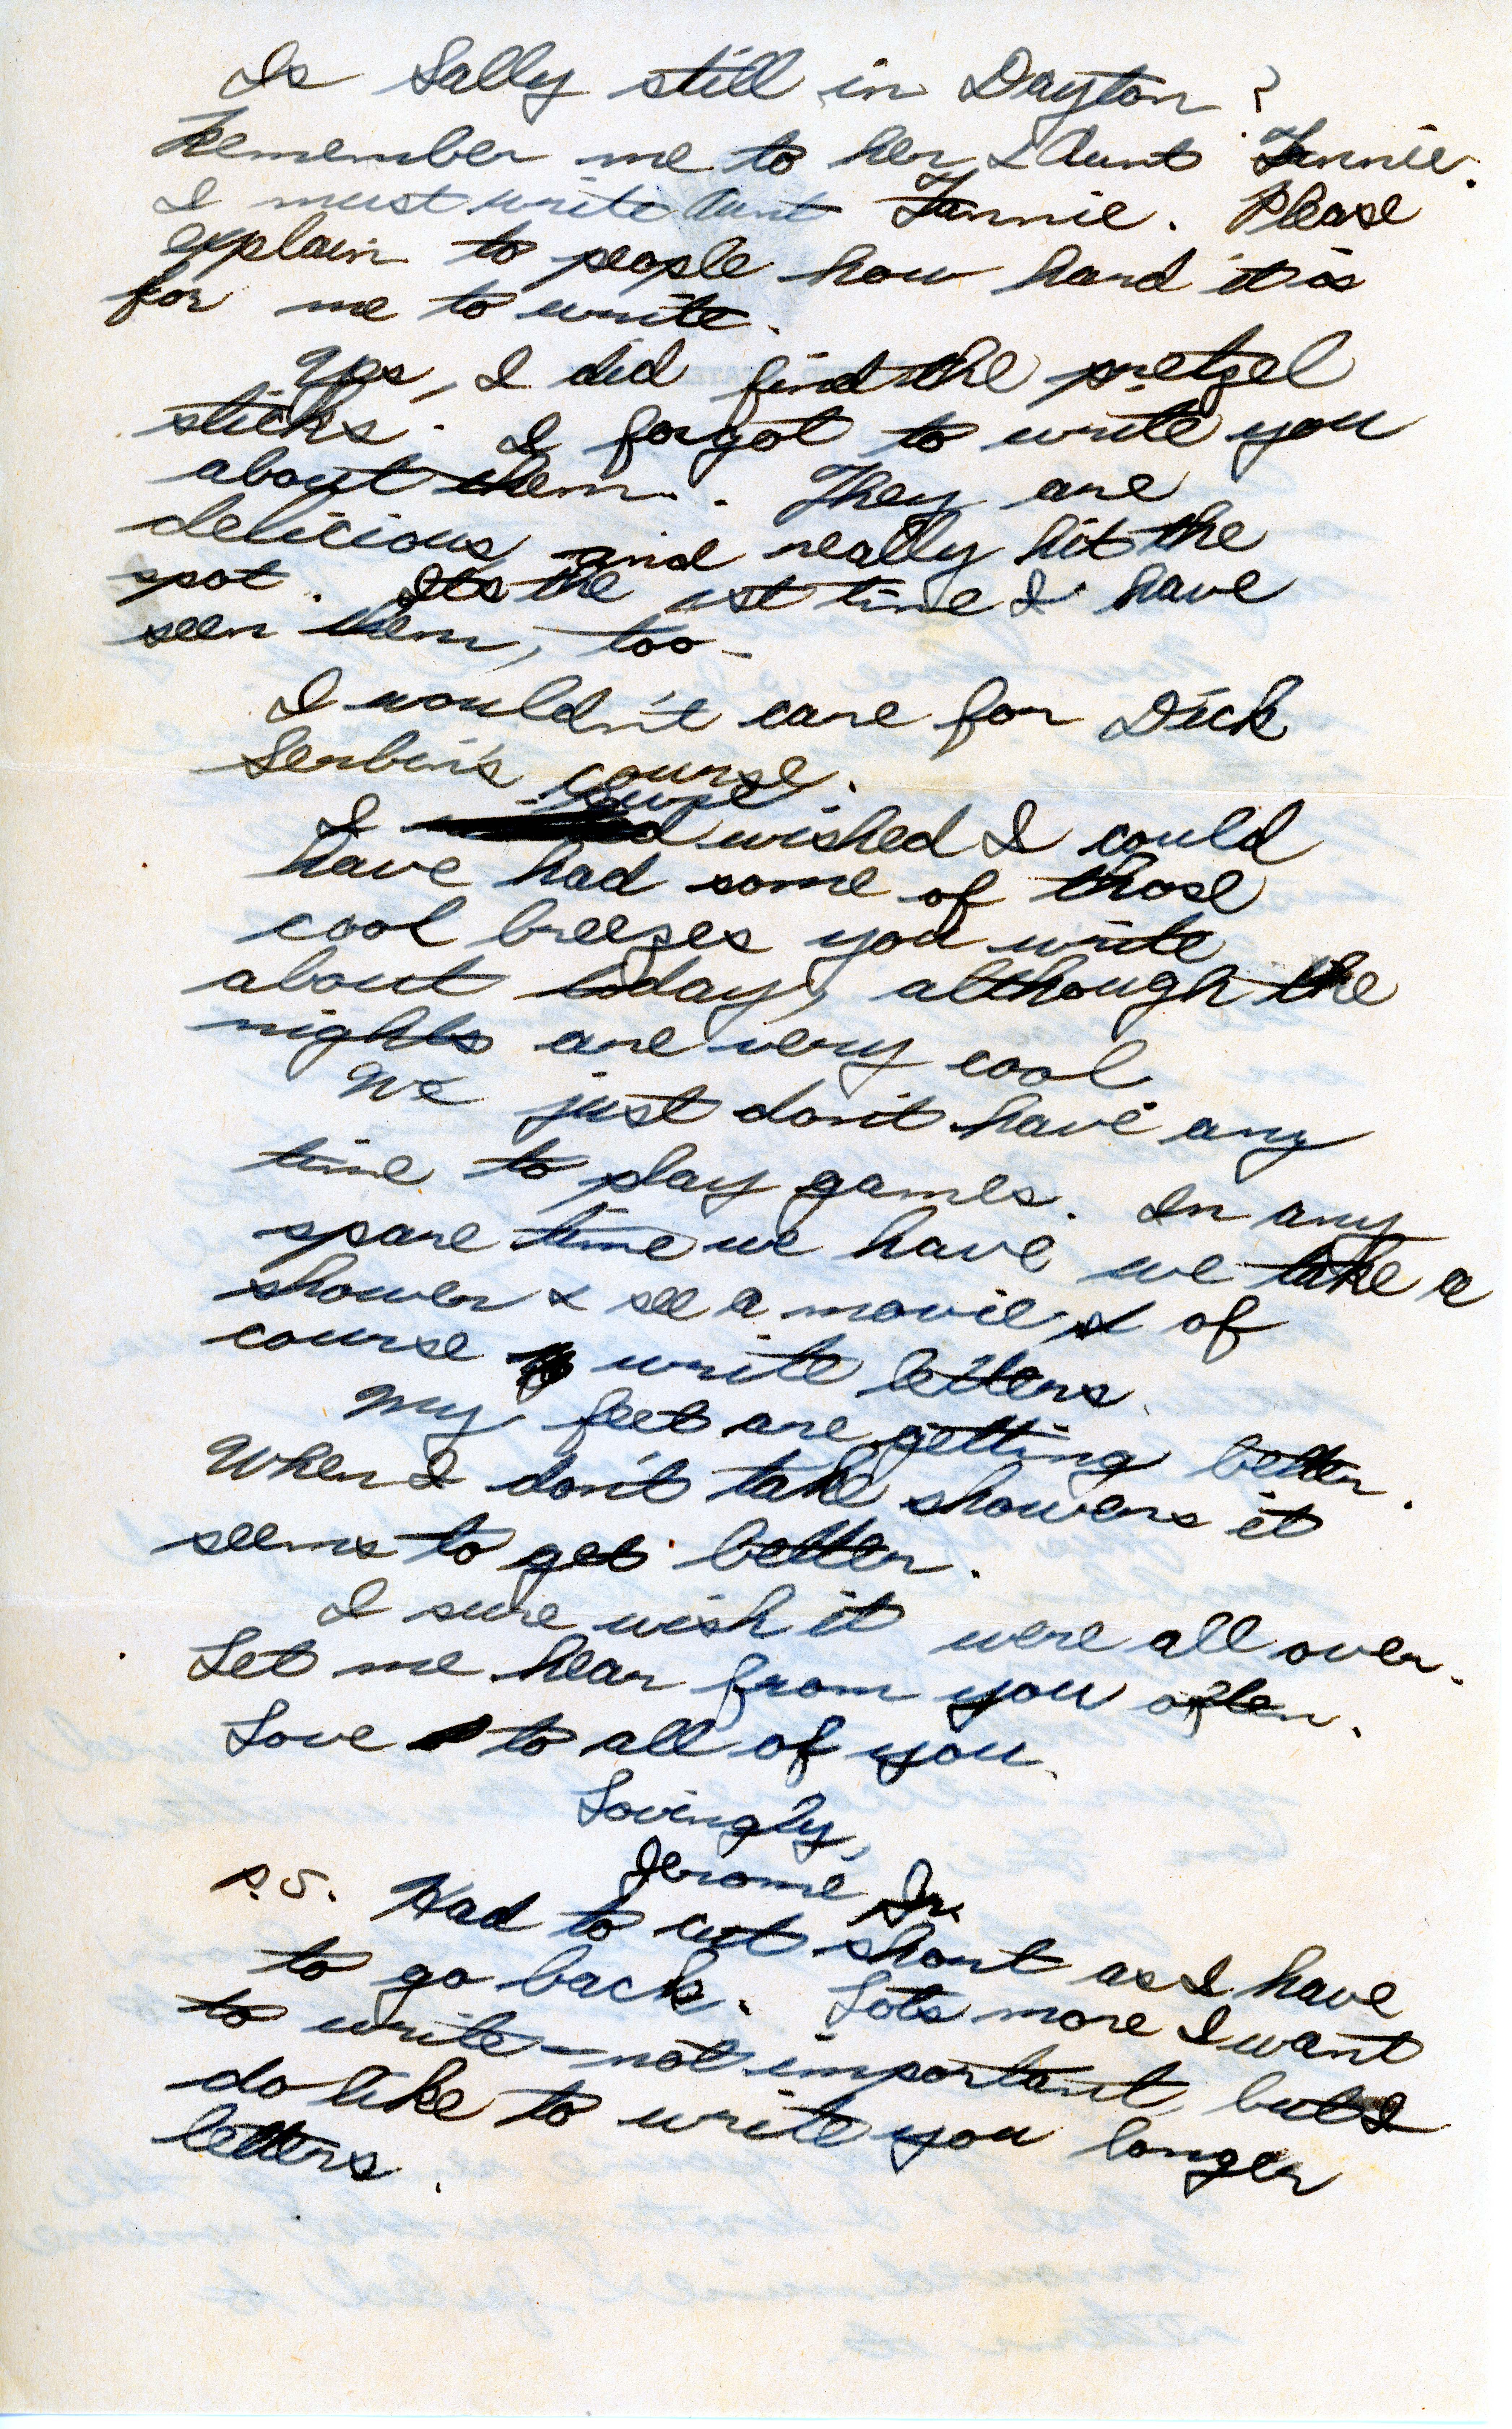 Is Sally still in Dayton?
Remember me to her & Aunt Fannie.
I must write Aunt Fannie. Please
explain to people how hard it is
for me to write.
Yes, I did find the pretzel
sticks. I forgot to write you
about them. They are
delicious and really hit the
spot. Its the 1st time I have
seen them, too.
I wouldn't care for Dick
Serbin's course.
course.
I wished I could
have had some of those
cool breezes you write
about today, although the
nights are very cool
We just don't have any
time to play games. In any
spare time we have we take a
shower & see a movie & of
course write letters.
My feet are getting better.
When I don't take showers it
seems to get better.
I sure wish it were all over.
Let me hear from you often.
Love to all of you.
Lovingly,
Jerome Jr.
P.S. Had to cut short as I have
to go back. Lots more I want
to write – not important, but I
do like to write you longer
letters.